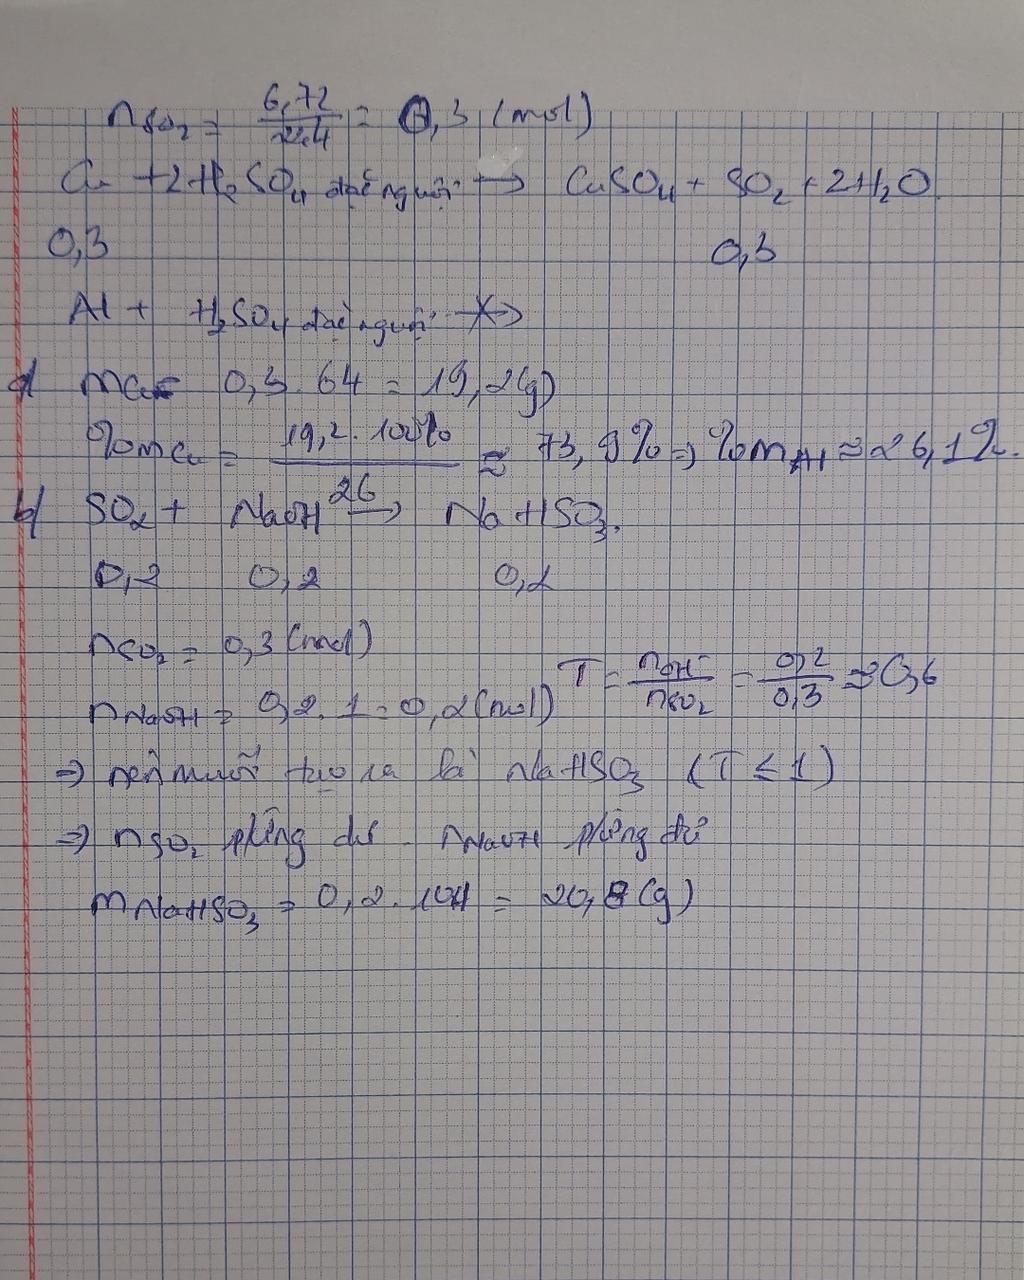 nSO₂ = 6,72/22,4 = 0,3 (mol)
Cu + 2H₂SO₄ đặc nguội → CuSO₄ + SO₂ + 2H₂O.
0,3 0,3
Al + H₂SO₄ đặc nguội -X->
a/ mCu = 0,3 . 64 = 19,2(g)
%mCu = 19,2 . 100%/26 ≈ 73,9% ⇒ %mAl ≈ 26,1%.
b/ SO₂ + NaOH → NaHSO₃.
0,2 0,2 0,2
nSO₂ = 0,3 (mol)
nNaOH = 0,2 . 1 = 0,2 (mol) T = nOH⁻/nSO₂ = 0,2/0,3 ≈ 0,6
⇒ nên muối tạo ra là NaHSO₃ (T ≤ 1)
⇒ nSO₂ phứng dư - nNaOH phứng đủ
mNaHSO₃ = 0,2 . 104 = 20,8 (g)